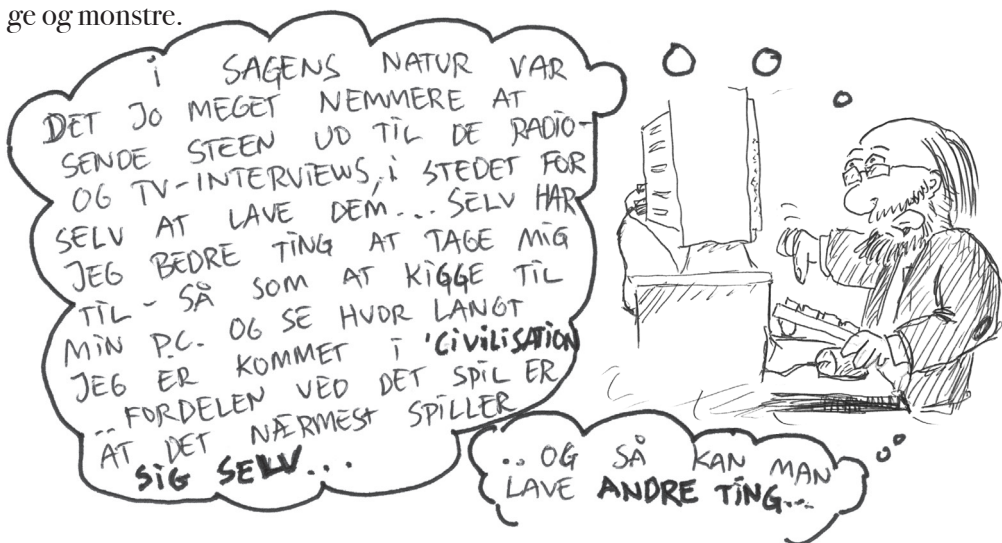 ge og monstre.
i SAGENS NATUR VAR
DET JO MEGET NEMMERE AT
SENDE STEEN UD TIL DE RADIO-
OG TV-INTERVIEWS, i STEDET FOR
SELV AT LAVE DEM... SELV HAR
JEG BEDRE TING AT TAGE MIG
TIL - SÅ SOM AT KIGGE TIL
MIN P.C. OG SE HVOR LANGT
JEG ER KOMMET I 'CIVILISATION
.. FORDELEN VED DET SPIL ER
AT DET NÆRMEST SPILLER
SIG SELV...
.. OG SÅ KAN MAN
LAVE ANDRE TING...